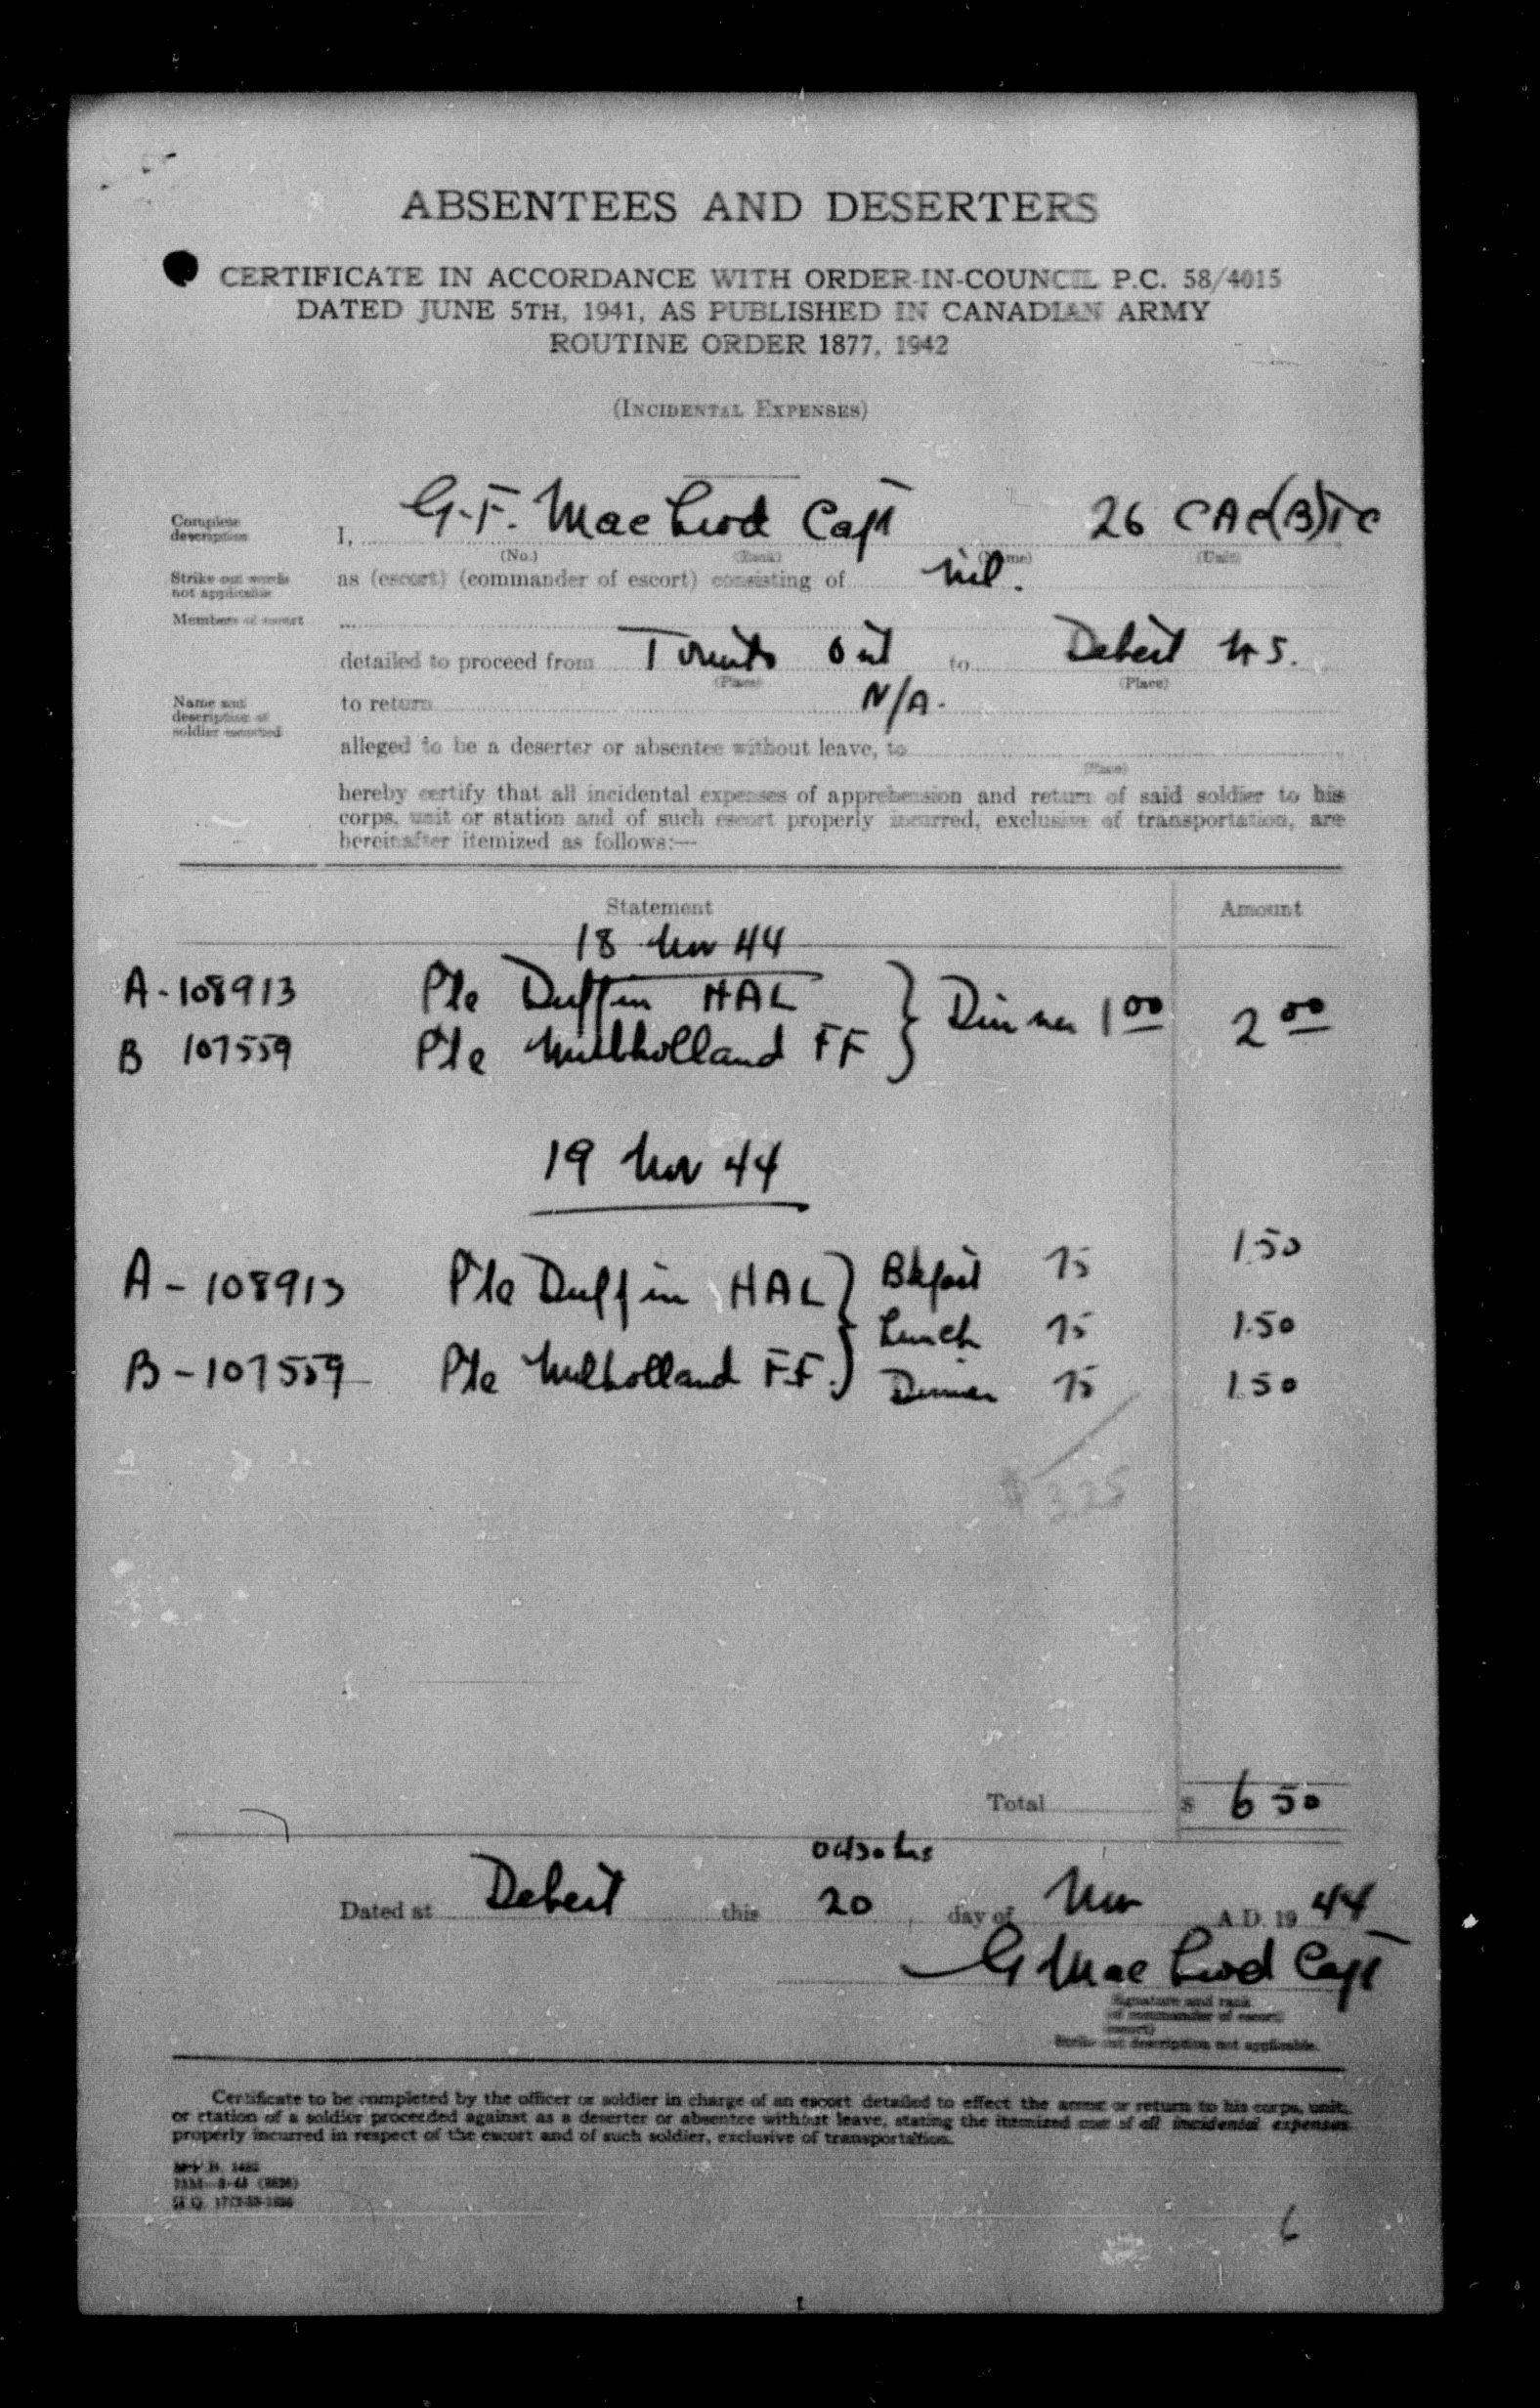 ABSENTEES AND DESERTERS
CERTIFICATE IN ACCORDANCE WITH ORDER-IN-COUNCIL P.C. 58/4015
DATED JUNE 5TH, 1941, AS PUBLISHED IN CANADIAN ARMY
ROUTINE ORDER 1877, 1942
(INCIDENTAL EXPENSES)
Complete description I, G.F. MacLeod Capt 26 CAC(B)TC
(No.) (Rank) (Name) (Unit)
Strike out words not applicable as (escort) (commander of escort) consisting of nil.
Members of escort
detailed to proceed from Toronto Ont to Debert NS.
(Place) (Place)
Name and description of soldier escorted to return N/A.
alleged to be a deserter or absentee without leave, to
(Place)
hereby certify that all incidental expenses of apprehension and return of said soldier to his
corps, unit or station and of such escort properly incurred, exclusive of transportation, are
hereinafter itemized as follows:—
Statement Amount
18 Nov 44
A-108913 Pte Duffin HAL } Dinner 1 00 2 00
B 107559 Pte Mulholland FF
19 Nov 44
A-108913 Pte Duffin HAL } Bkfast 75 1.50
Lunch 75 1.50
B-107559 Pte Mulholland F.F. Dinner 75 1.50
$ 3.25
Total $ 6 50
0430 hrs
Dated at Debert this 20 day of Nov A.D. 19 44
G MacLeod Capt
Signature and rank
of commander of escort
(escort)
Strike out description not applicable.
Certificate to be completed by the officer or soldier in charge of an escort detailed to effect the arrest or return to his corps, unit,
or station of a soldier proceeded against as a deserter or absentee without leave, stating the itemized cost of all incidental expenses
properly incurred in respect of the escort and of such soldier, exclusive of transportation.
6